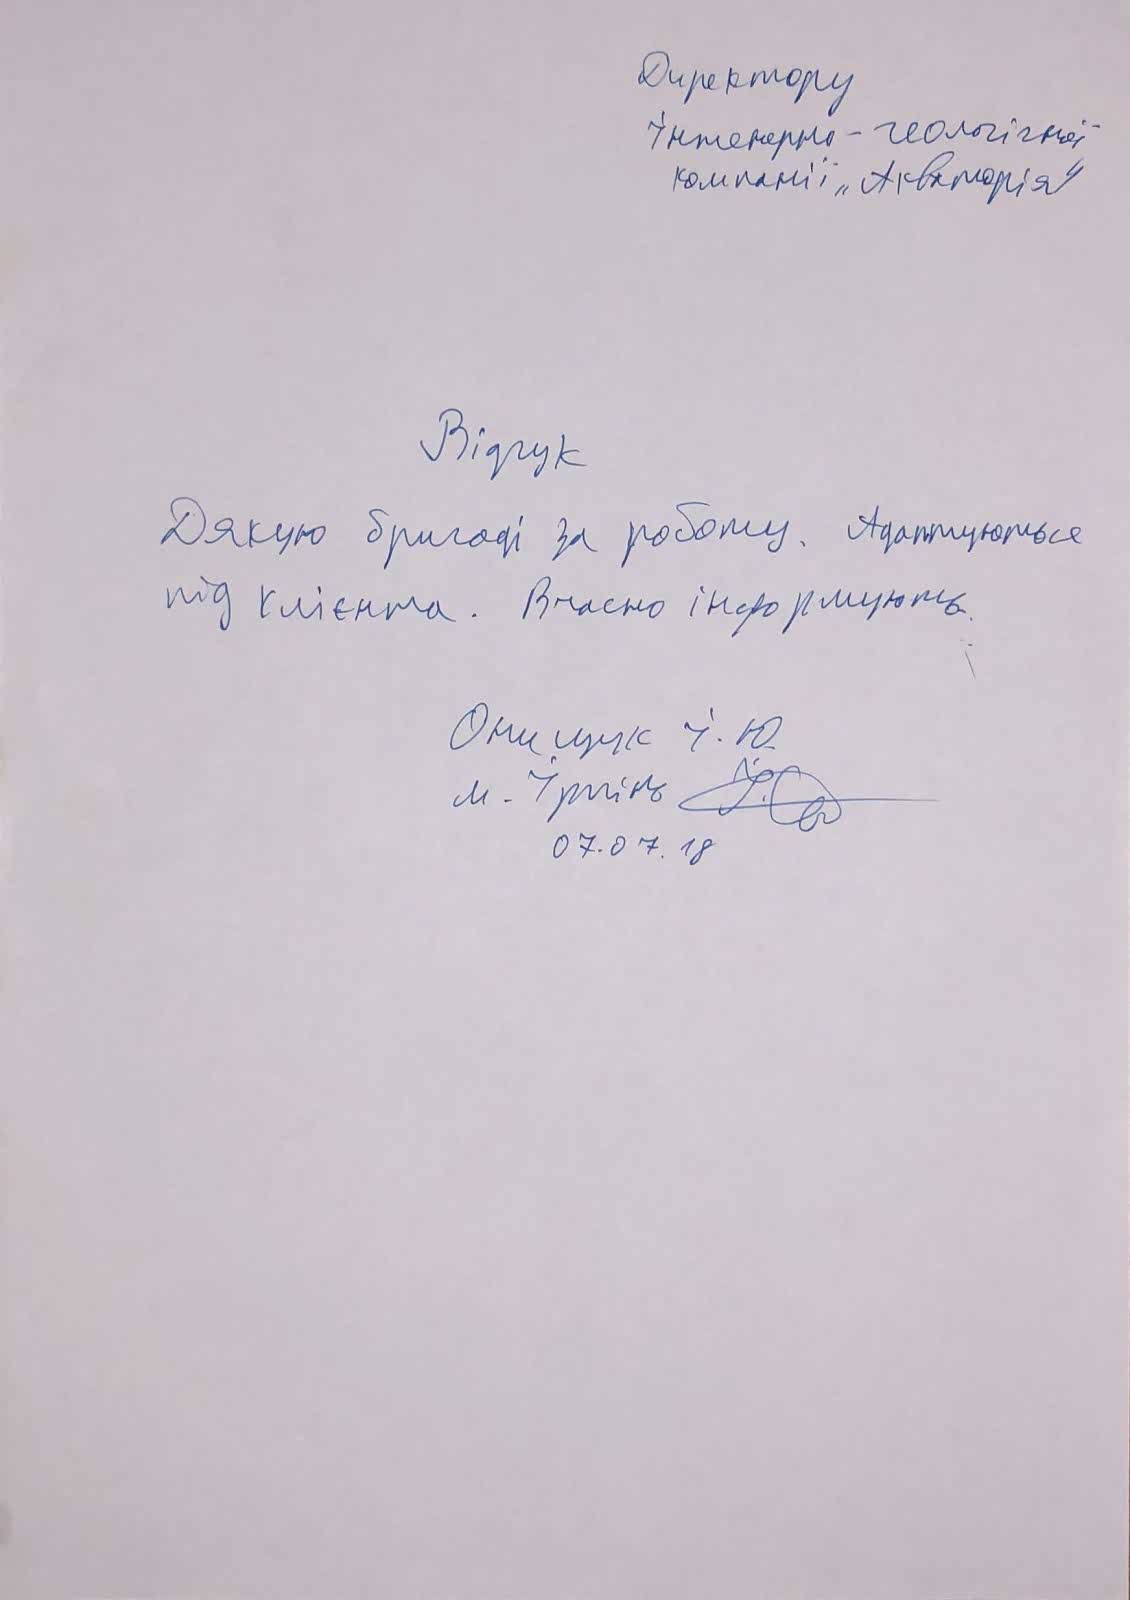 Директору
Інженерно-геологічної
компанії „Акваторія"
Відгук
Дякую бригаді за роботу. Адаптуються
під клієнта. Вчасно інформують.
Онищук І.Ю
м. Ірпінь
07.07.18